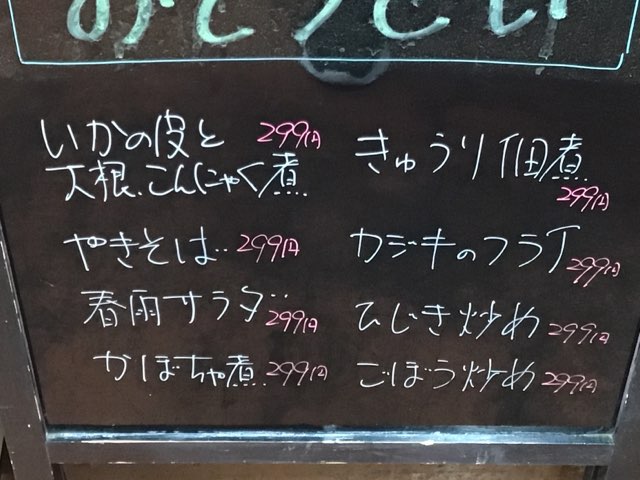 いかの皮と 299円
大根.こんにゃく煮
やきそば 299円
春雨サラダ 299円
かぼちゃ煮 299円
きゅうり佃煮
299円
カジキのフライ 299円
ひじき炒め 299円
ごぼう炒め 299円